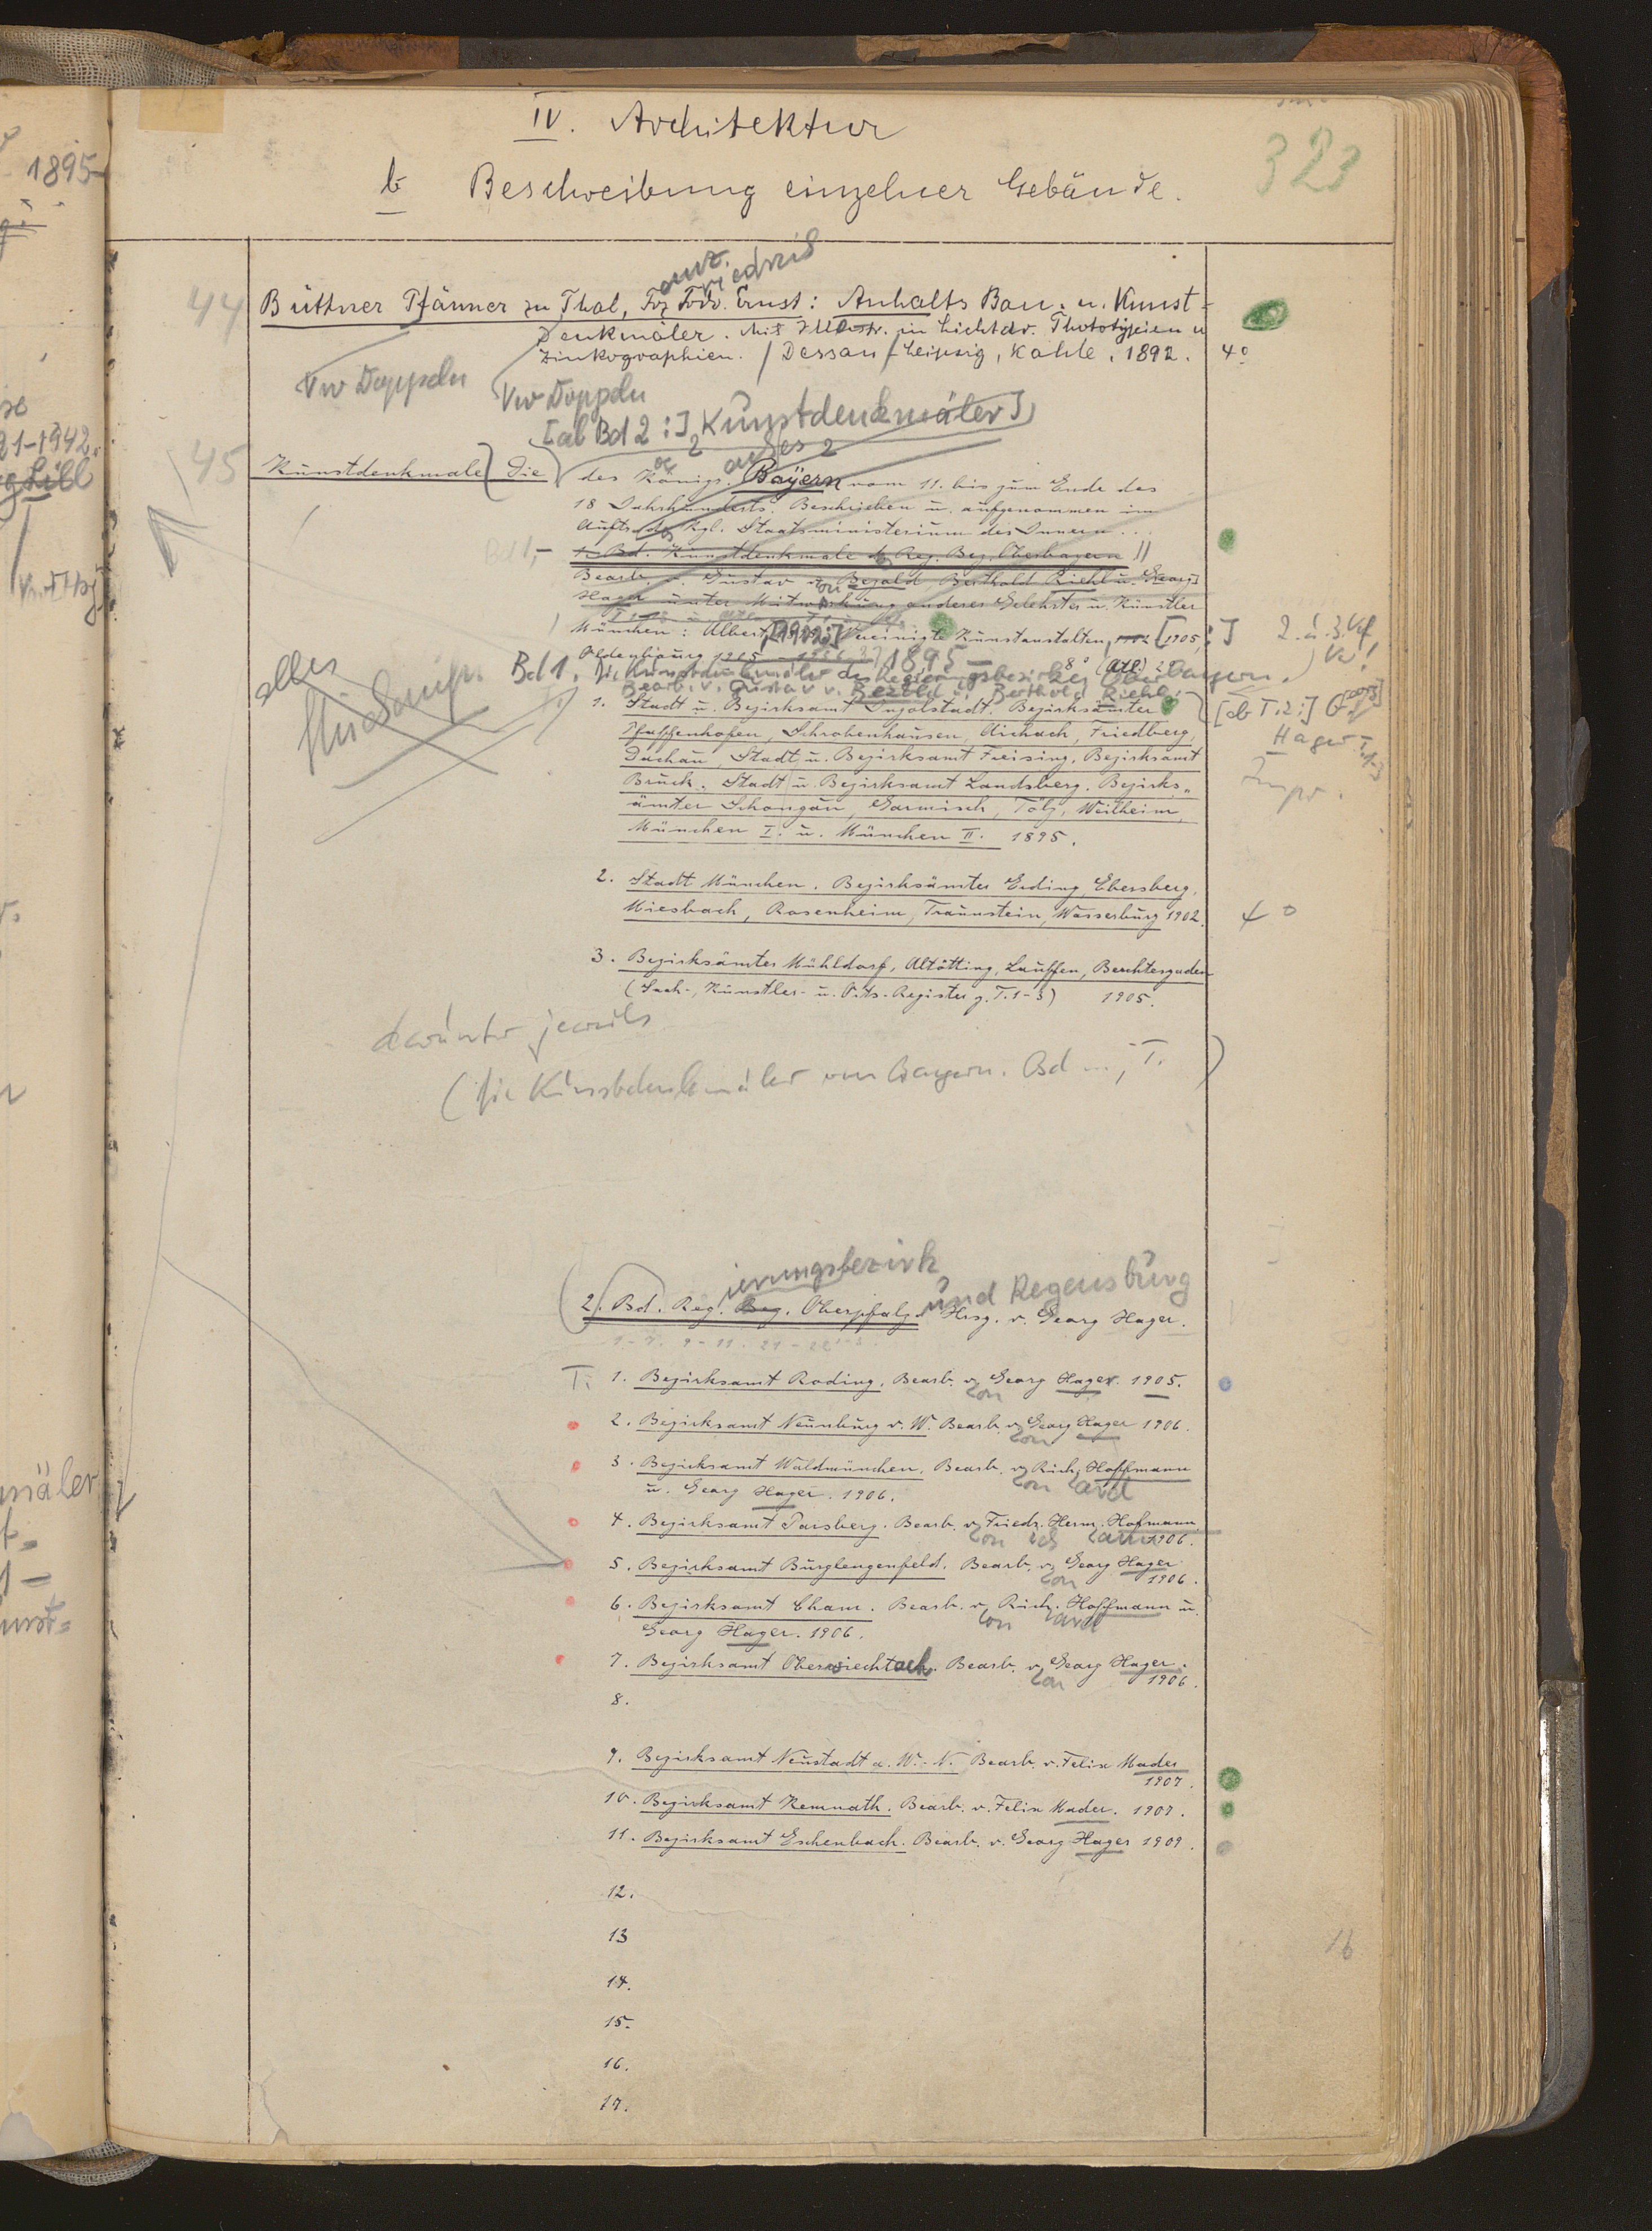 IV. Architektur
323
b Beschreibung einzelner Gebäude.
1895
44
anz. riedrich
Büttner Pfänner zu Thal, Frz Frdr. Ernst: Anhalts Bau- u. Kunst-
Denkmäler. Mit Illustr. in Lichtdr. Phototypien u
Zinkographien. / Dessau / Leipzig, Kahle, 1892. 4°
Vw Doppeln
Vw Doppeln
[ab Bd 2:] Kunstdenkmäler]
45
Kunstdenkmale (Die) des Königr. Bayern vom 11. bis zum Ende des
18 Jahrhunderts. Beschrieben u. aufgenommen im
Auftr. d. Kgl. Staatsministerium des Innern ...
Bd 1,-
1. Bd. Kunstdenkmale d. Reg. Bez. Oberbayern
Bearb. v. Gustav v. Bezold Berthold Riehl u. Georg
Hager unter Mitwirkung anderer Gelehrter u. Künstler
München: Albert Vereinigte Kunstanstalten, [1905:]
2. u. 3. Vf
Oldenbourg 1895 –
8° (Atl.) 2°
Bd 1. Die Kunstdenkmäler des Regierungsbezirkes Oberbayern.
Bearb. v. Gustav v. Bezold u. Berthold Riehl.
[ab T. 2:] Georg
Hager
alles
1. Stadt u. Bezirksamt Ingolstadt. Bezirksämter
Pfaffenhofen, Schrobenhausen, Aichach, Friedberg,
Dachau, Stadt u. Bezirksamt Freising, Bezirksamt
Bruck. Stadt u. Bezirksamt Landsberg. Bezirks-
ämter Schongau, Garmisch, Tölz, Weilheim,
München I. u. München II. 1895.
2. Stadt München. Bezirksämter Erding, Ebersberg,
Miesbach, Rosenheim, Traunstein, Wasserburg 1902.
4°
3. Bezirksämter Mühldorf, Altötting, Lauffen, Berchtesgaden
(Sach-, Künstler- u. Orts-Register z. T. 1-3) 1905.
darunter jeweils
(Die Kunstdenkmäler von Bayern. Bd ..., T. )
ierungsbezirk
2. Bd. Reg. Bez. Oberpfalz und Regensburg Hrsg. v. Georg Hager.
1.-7. 9-11. 21-22
T. 1. Bezirksamt Roding. Bearb. von Georg Hager. 1905.
2. Bezirksamt Neunburg v. W. Bearb. von Georg Hager 1906.
3. Bezirksamt Waldmünchen. Bearb. von Richard Hoffmann
u. Georg Hager. 1906.
4. Bezirksamt Parsberg. Bearb. von Friedr. Herm. Hofmann
1906.
5. Bezirksamt Burglengenfeld. Bearb. von Georg Hager
1906.
6. Bezirksamt Cham. Bearb. von Richard Hoffmann u.
Georg Hager. 1906.
7. Bezirksamt Oberviechtach. Bearb. von Georg Hager.
1906.
8.
9. Bezirksamt Neustadt a. W.-N. Bearb. v. Felix Mader
1907.
10. Bezirksamt Kemnath. Bearb. v. Felix Mader. 1907.
11. Bezirksamt Eschenbach. Bearb. v. Georg Hager 1909.
12.
13
16
14.
15.
16.
17.